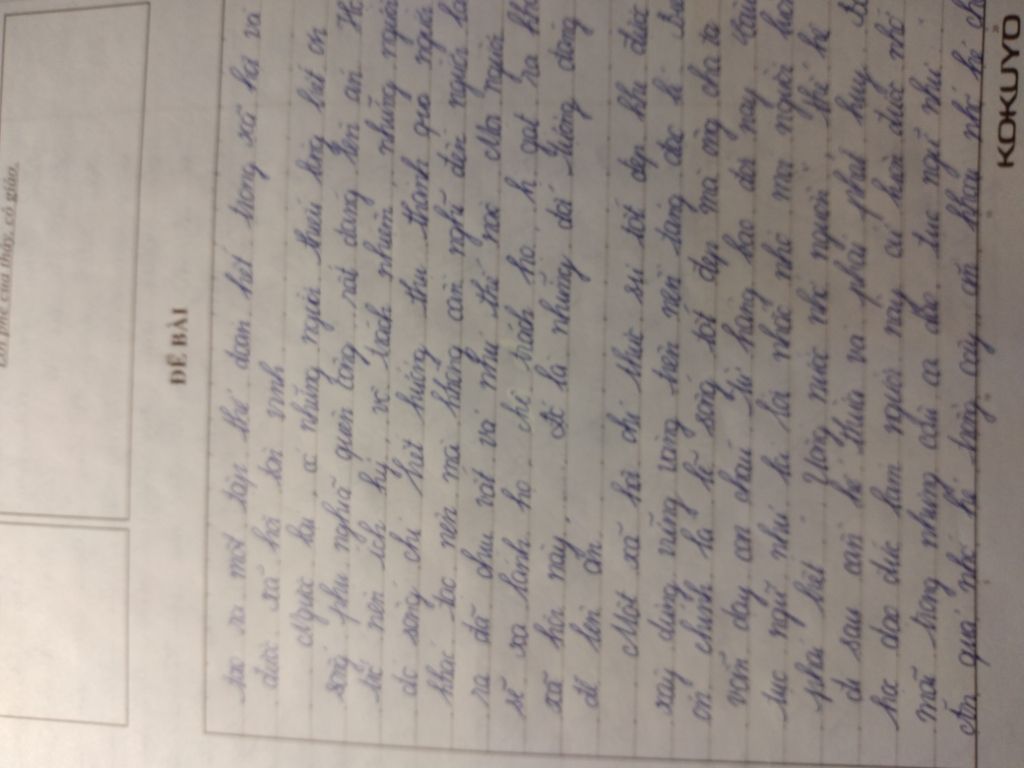 Lời phê của thầy, cô giáo.
ĐỀ BÀI
ra một tập thể đoàn kết trong xã hội và
được xã hội tôn vinh
Ngược lại có những người thiếu lòng biết ơn
sống phụ nghĩa quên công rất đáng lên án. Họ
sẽ nên ích kỷ, vô trách nhiệm những người
đó sống chỉ biết hưởng thụ thành quả người
khác tạo nên mà không cần nghĩ đến người
ra đã chịu vất vả như thế nào. Mọi người
sẽ xa lánh họ chỉ trách họ, gạt ra khỏi
xã hội này. Đó là những đối tượng đáng
để lên án.
Một xã hội chỉ thực sự tốt đẹp khi được
xây dựng vững vàng trên nền tảng đó
ơn chính là lẽ sống tốt đẹp mà ông cha ta
vẫn dạy con cháu từ hàng bao đời nay
tục ngữ như là lời nhắc nhở mọi người
phải biết Uống nước nhớ nguồn thế hệ
đi sau cần kế thừa và phải phát huy
học đạo đức làm người này có hoài được
mãi trong những câu ca dao tục ngữ như
Ăn quả nhớ kẻ trồng cây ăn khoai nhớ kẻ
KOKUYO